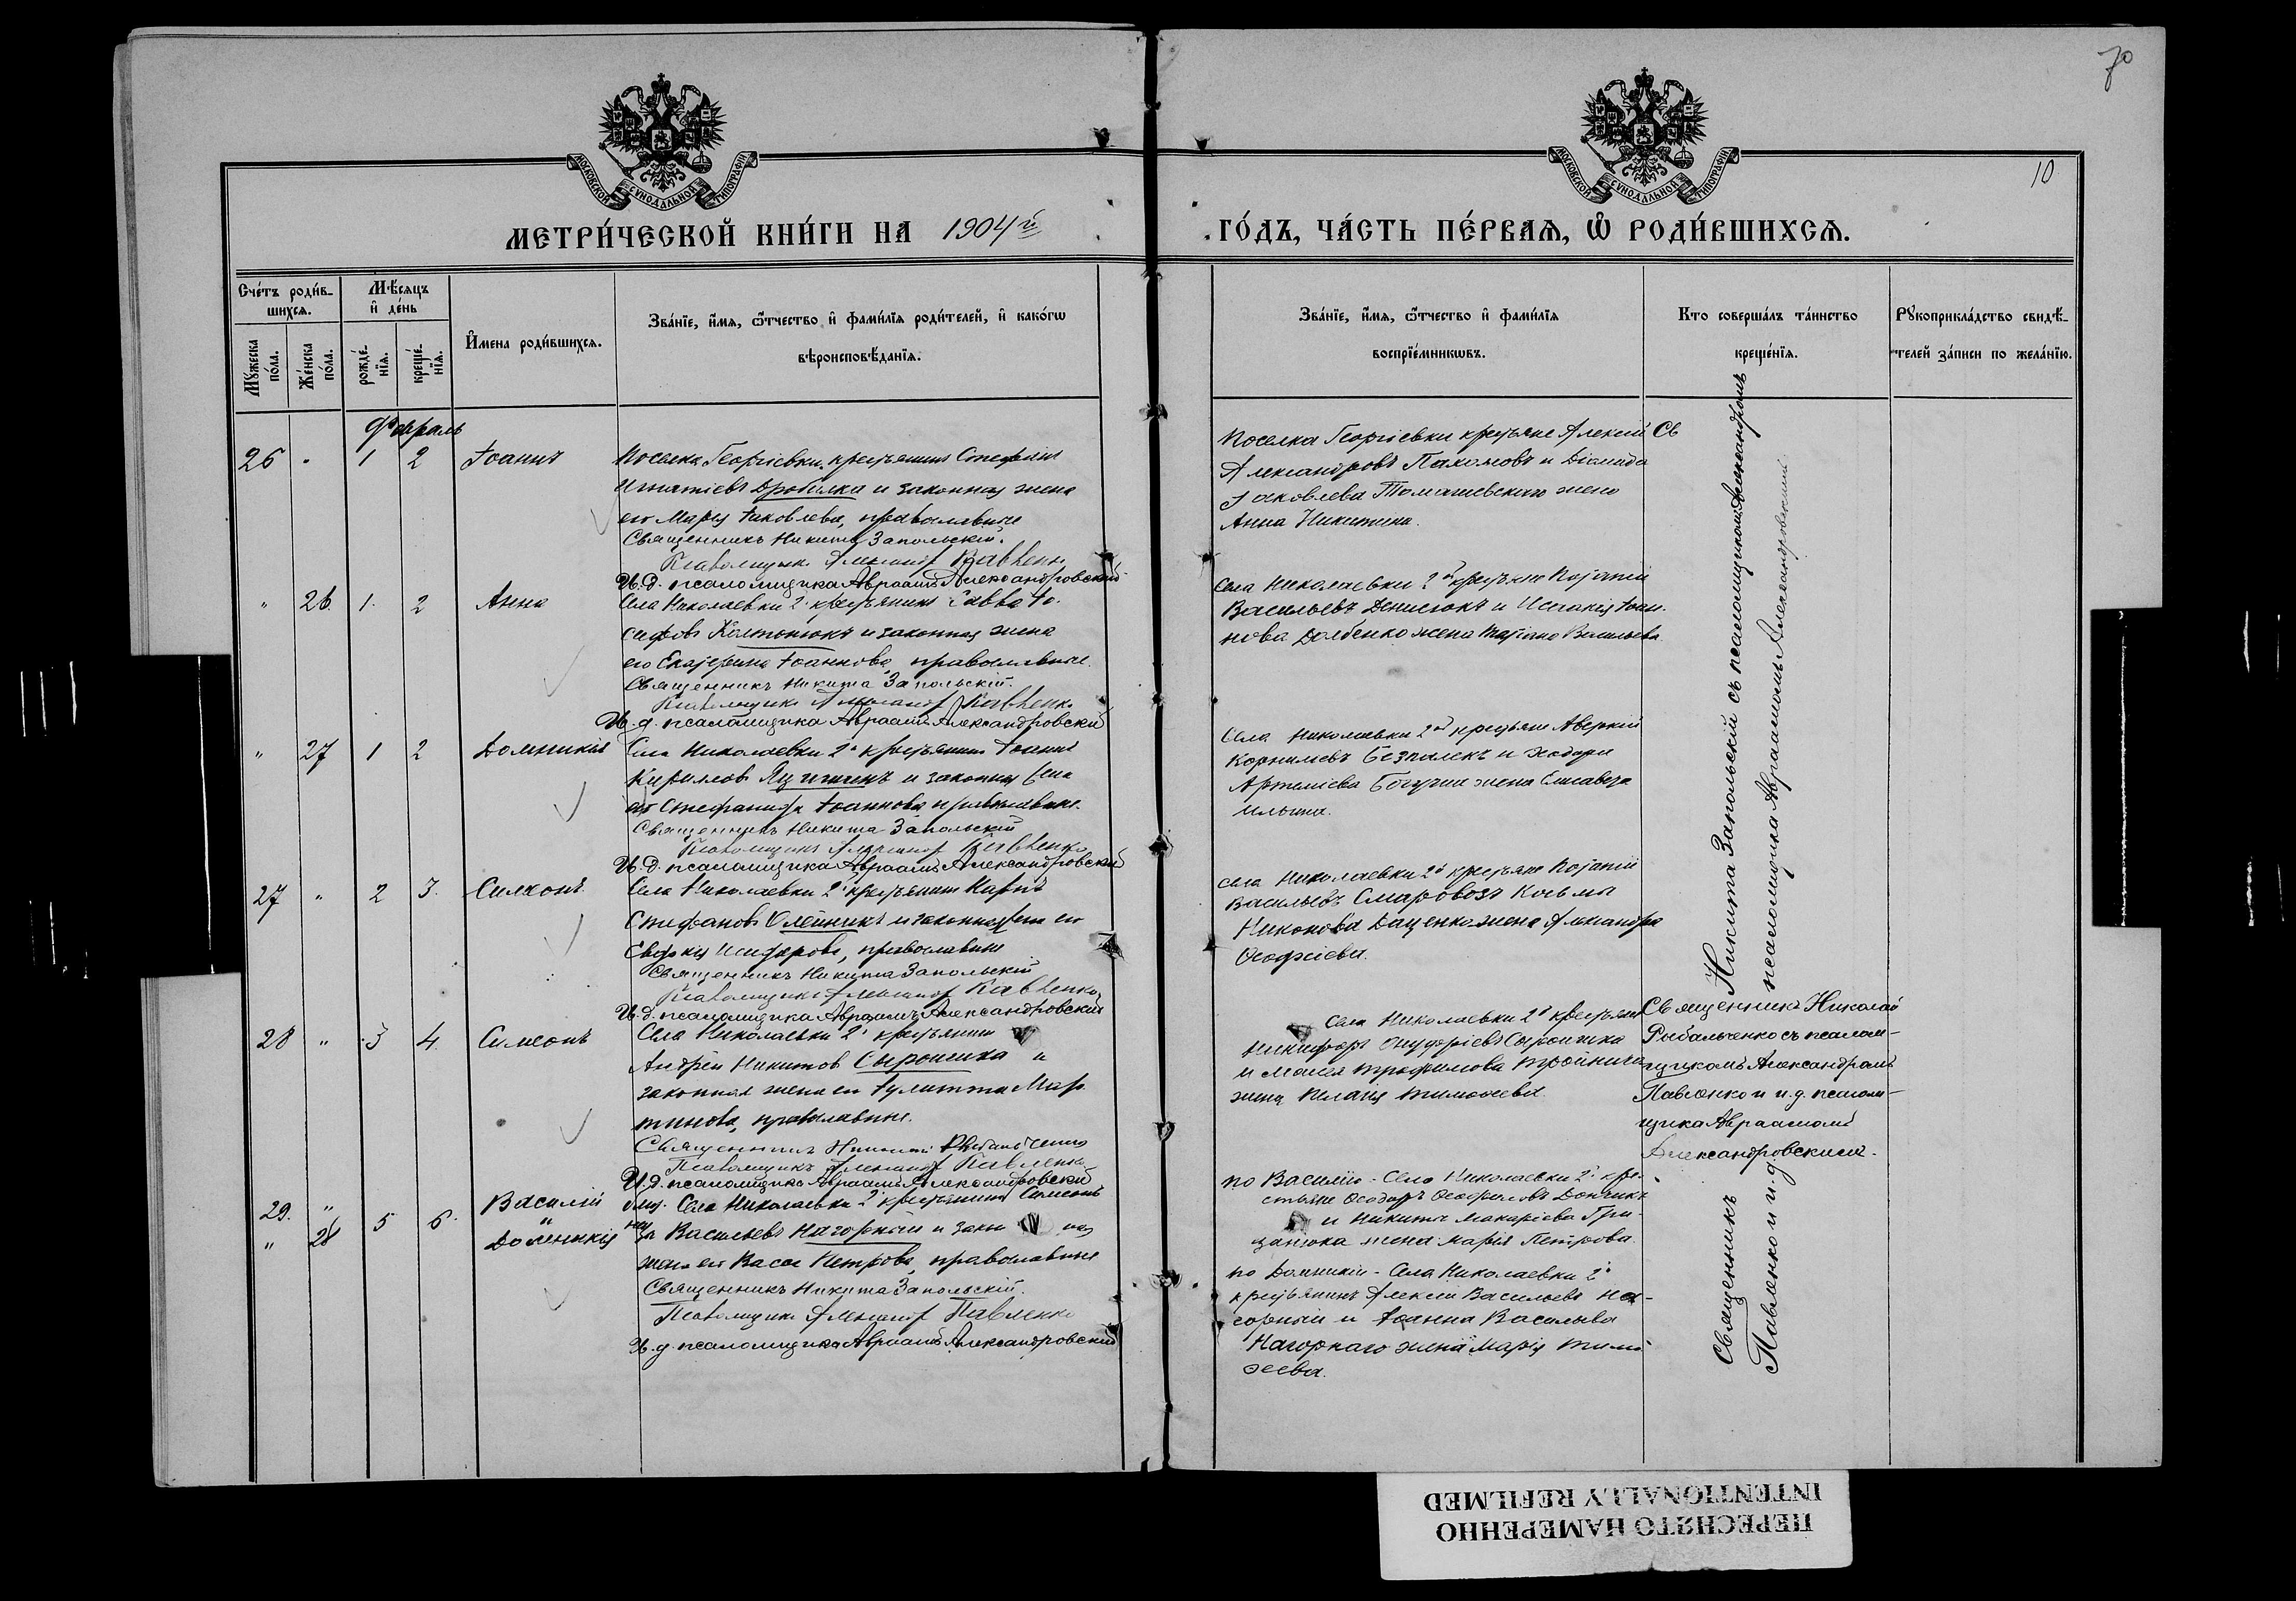 70
10
МОСКОВСКОЙ СѴНОДАЛЬНОЙ ТИПОГРАФІИ
МОСКОВСКОЙ СѴНОДАЛЬНОЙ ТИПОГРАФІИ
МЕТРИ́ЧЕСКОЙ КНИ́ГИ НА 1904й ГО́ДЪ, ЧА́СТЬ ПЕ́РВАЯ, Ѽ РОДИ́ВШИХСЯ.
Сче́тъ роди́в-
шихся.
Му́жеска по́ла.
Же́нска по́ла.
Мѣ́сяцъ и де́нь
рожде́-нїя.
креще́-нїя.
И́мена роди́вшихся.
Зва́нїе, и́мя, ѻ҆́тчество и фами́лїя роди́телей, и како́гѡ
вѣроисповѣ́данїя.
Зва́нїе, и́мя, ѻ҆́тчество и фами́лїя
воспрїе́мникѡвъ.
Кто соверша́лъ та́инство
креще́нїя.
Рꙋкоприкла́дство свидѣ́-
телей за́писи по жела́нїю.
Февраль
26 " 1 2 Іоаннъ
Поселка Георгіевки крестьянинъ Стефанъ
Игнатіевъ Дробилка и законная жена
его Марія Іаковлева, православные
Священникъ Никита Запольскій.
Псаломщикъ Александр Павленко
И. д. псаломщика Авраамъ Александровскій
Поселка Георгіевки крестьяне Алексій
Александровъ Пахомовъ и Діомида
Іаковлева Томашевскаго жена
Анна Никитина.
Св
" 26. 1. 2 Анна
Села Николаевки 2й крестьянинъ Савва Іо-
сифовъ и законная жена
его Екатерина Іоаннова, православные.
Священникъ Никита Запольскій.
Псаломщикъ Александр Павленко
И. д. псаломщика Авраамъ Александровскій
Села Николаевки 2й крестьяне Потапій
Васильевъ Денисюкъ и Исаакія Іоан-
нова Долбенко жена Татіана Васильева
" 27 1 2 Домникія
Села Николаевки 2й крестьянинъ Іоаннъ
Кириловъ и законная жена
его Стефанида Іоаннова, православные.
Священникъ Никита Запольскій
Псаломщикъ Александр Павленко
И. д. псаломщика Авраамъ Александровскій
Села Николаевки 2й крестьяне Аверкій
Корниліевъ и
Артеміева жена Елисавета
Ильина.
27 " 2 3. Симеонъ
Села Николаевки 2й крестьянинъ Карпъ
Стефановъ Олейникъ и законная жена его
Евдокія Исидорова, православные
Священникъ Никита Запольскій
Псаломщикъ Александр Павленко
И. д. псаломщика Авраамъ Александровскій
Села Николаевки 2й крестьяне Потапій
Васильевъ Смаровозъ Косьмы
Никонова Даценко жена Александра
28 " 3 4. Симеонъ
Села Николаевки 2й крестьянинъ
Андрей Никитовъ Сыроишка и
законная жена его Іулитта Мар-
тинова, православные.
Священникъ Николай Рыбальченко
Псаломщикъ Александр Павленко
И. д. псаломщика Авраамъ Александровскій
Села Николаевки 2й крестьяне
Никифоръ Онуфріевъ Сыроишка
и Моисея Трофимова
жена Пелагія Тимоѳеева
Священникъ Николай
Рыбальченко съ псалом-
щикомъ Александромъ
Павленко и и. д. псалом-
щика Авраамомъ
Александровскимъ.
29. " 5 6. Василій
" 28 Домникія
близ- Села Николаевки 2й крестьянинъ Симеонъ
Васильевъ Нагорный и закон ная
жена его Васса Петрова, православные
Священникъ Никита Запольскій.
Псаломщикъ Александр Павленко
И. д. псаломщика Авраамъ Александровскій
по Василіи - Села Николаевки 2й кре-
стьяне Ѳеодоръ
и Никиты Макаріева Гри-
жена Марія Петрова.
по Домникіи - Села Николаевки 2й
крестьянинъ Алексій Васильевъ На-
горный и Іоанна Васильева
Нагорнаго жена Марія Тимо-
ѳеева.
Священникъ Никита Запольскій съ псаломщикомъ Александромъ
Павленко и и. д. псаломщика Авраамомъ Александровскимъ.
ПЕРЕСНЯТО НАМЕРЕННО
INTENTIONALLY REFILMED